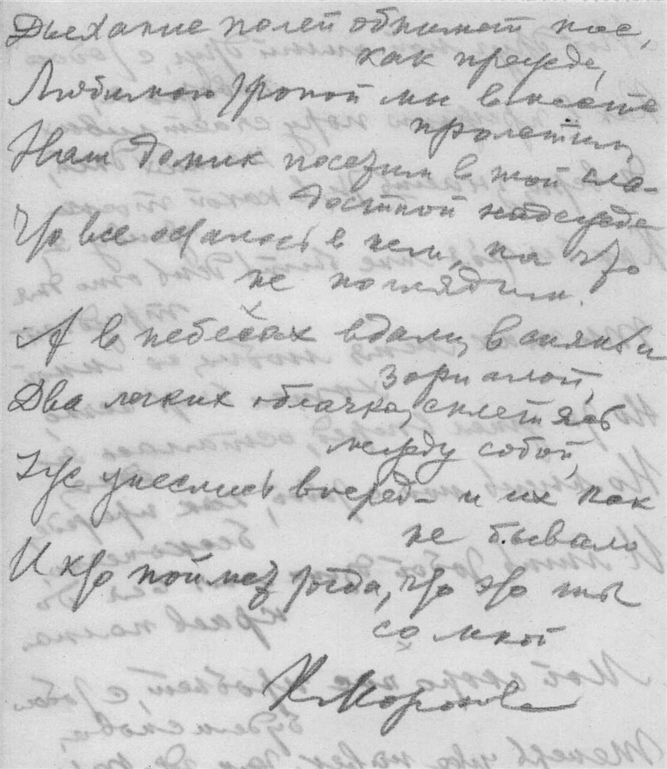 Дыхание полей обнимет нас,
как прежде,
Любимою тропой мы вместе
пролетим,
Наш домик посетим в той сла-
достной надежде
Что все осталось в нем, на что
не поглядим.
А в небесах вдали, в сиянии
зори алой,
Два легких облачка, сплетясь
между собой,
Уже унеслись вперед – и их как
не бывало
И кто поймет тогда, что это ты
со мной
К Морозова